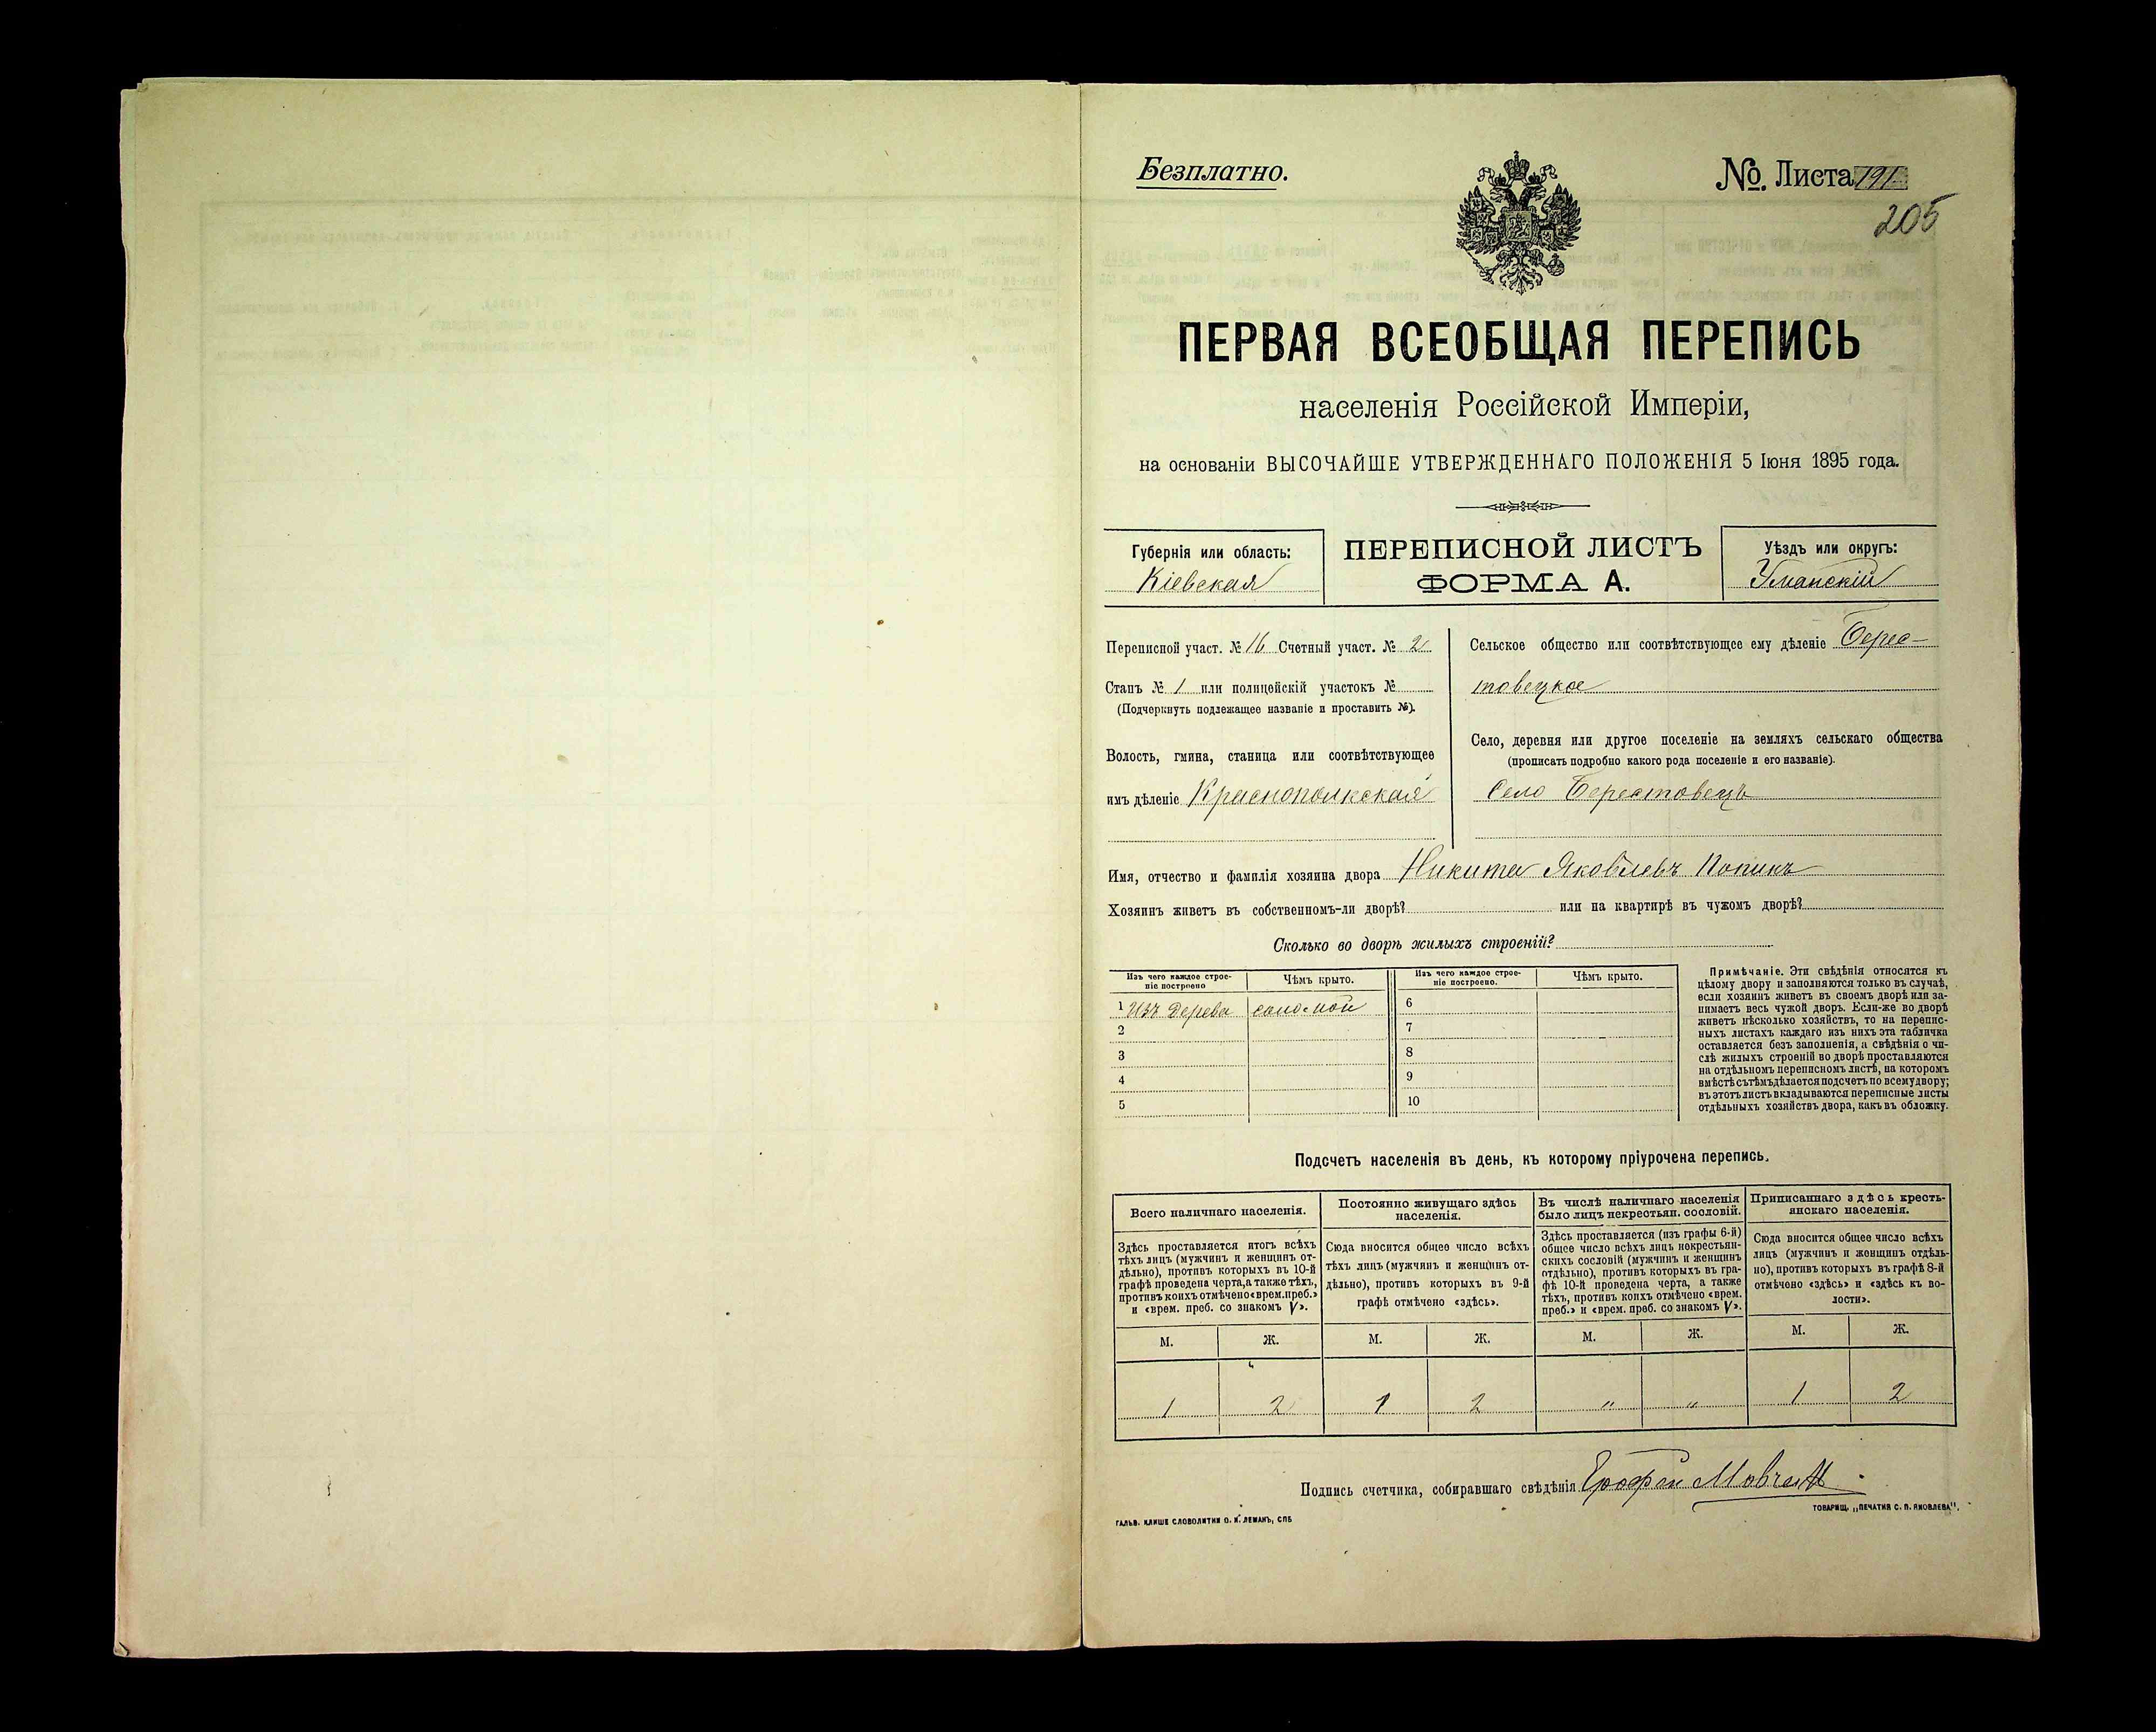 Безплатно.
№. Листа 191
205
ПЕРВАЯ ВСЕОБЩАЯ ПЕРЕПИСЬ
населенія Россійской Имперіи,
на основаніи ВЫСОЧАЙШЕ УТВЕРЖДЕННАГО ПОЛОЖЕНІЯ 5 Іюня 1895 года.
Губернія или область:
Кіевская
ПЕРЕПИСНОЙ ЛИСТЪ
ФОРМА А.
Уѣздъ или округъ:
Уманскій
Переписной участ. № 16 Счетный участ. № 2
Станъ № 1 или полицейскій участокъ №
(Подчеркнуть подлежащее названіе и проставить №).
Волость, гмина, станица или соотвѣтствующее
имъ дѣленіе Краснополкская
Сельское общество или соотвѣтствующее ему дѣленіе Берес-
товецкое
Село, деревня или другое поселеніе на земляхъ сельскаго общества
(прописать подробно какого рода поселеніе и его названіе).
Село Берестовецъ
Имя, отчество и фамилія хозяина двора Никита Яковлевъ Попикъ
Хозяинъ живетъ въ собственномъ-ли дворѣ? или на квартирѣ въ чужомъ дворѣ?
Сколько во дворѣ жилыхъ строеній?
Изъ чего каждое строе-
ніе построено
Чѣмъ крыто.
Изъ чего каждое строе-
ніе построено.
Чѣмъ крыто.
1 Изъ дерева соломой
2
3
4
5
6
7
8
9
10
Примѣчаніе. Эти свѣдѣнія относятся къ
цѣлому двору и заполняются только въ случаѣ,
если хозяинъ живетъ въ своемъ дворѣ или за-
нимаетъ весь чужой дворъ. Если-же во дворѣ
живетъ нѣсколько хозяйствъ, то на перепис-
ныхъ листахъ каждаго изъ нихъ эта табличка
оставляется безъ заполненія, а свѣдѣнія о чи-
слѣ жилыхъ строеній во дворѣ проставляются
на отдѣльномъ переписномъ листѣ, на которомъ
вмѣстѣ съ тѣмъ дѣлается подсчетъ по всему двору;
въ этотъ листъ вкладываются переписные листы
отдѣльныхъ хозяйствъ двора, какъ въ обложку.
Подсчетъ населенія въ день, къ которому пріурочена перепись.
Всего наличнаго населенія.
Постоянно живущаго здѣсь
населенія.
Въ числѣ наличнаго населенія
было лицъ некрестьян. сословій.
Приписаннаго здѣсь кресть-
янскаго населенія.
Здѣсь проставляется итогъ всѣхъ
тѣхъ лицъ (мужчинъ и женщинъ от-
дѣльно), противъ которыхъ въ 10-й
графѣ проведена черта, а также тѣхъ,
противъ коихъ отмѣчено «врем. преб.»
и «врем. преб. со знакомъ V».
Сюда вносится общее число всѣхъ
тѣхъ лицъ (мужчинъ и женщинъ от-
дѣльно), противъ которыхъ въ 9-й
графѣ отмѣчено «здѣсь».
Здѣсь проставляется (изъ графы 6-й)
общее число всѣхъ лицъ некрестьян-
скихъ сословій (мужчинъ и женщинъ
отдѣльно), противъ которыхъ въ гра-
фѣ 10-й проведена черта, а также
тѣхъ, противъ коихъ отмѣчено «врем.
преб.» и «врем. преб. со знакомъ V».
Сюда вносится общее число всѣхъ
лицъ (мужчинъ и женщинъ отдѣль-
но), противъ которыхъ въ графѣ 8-й
отмѣчено «здѣсь» и «здѣсь къ во-
лости».
М. Ж. М. Ж. М. Ж. М. Ж.
1 2 1 2 " " 1 2
Подпись счетчика, собиравшаго свѣдѣнія Ерофей Мовчан
ГАЛЬВ. КЛИШЕ СЛОВОЛИТНИ О. И. ЛЕМАНЪ, СПБ
ТОВАРИЩ. „ПЕЧАТНЯ С. П. ЯКОВЛЕВА".